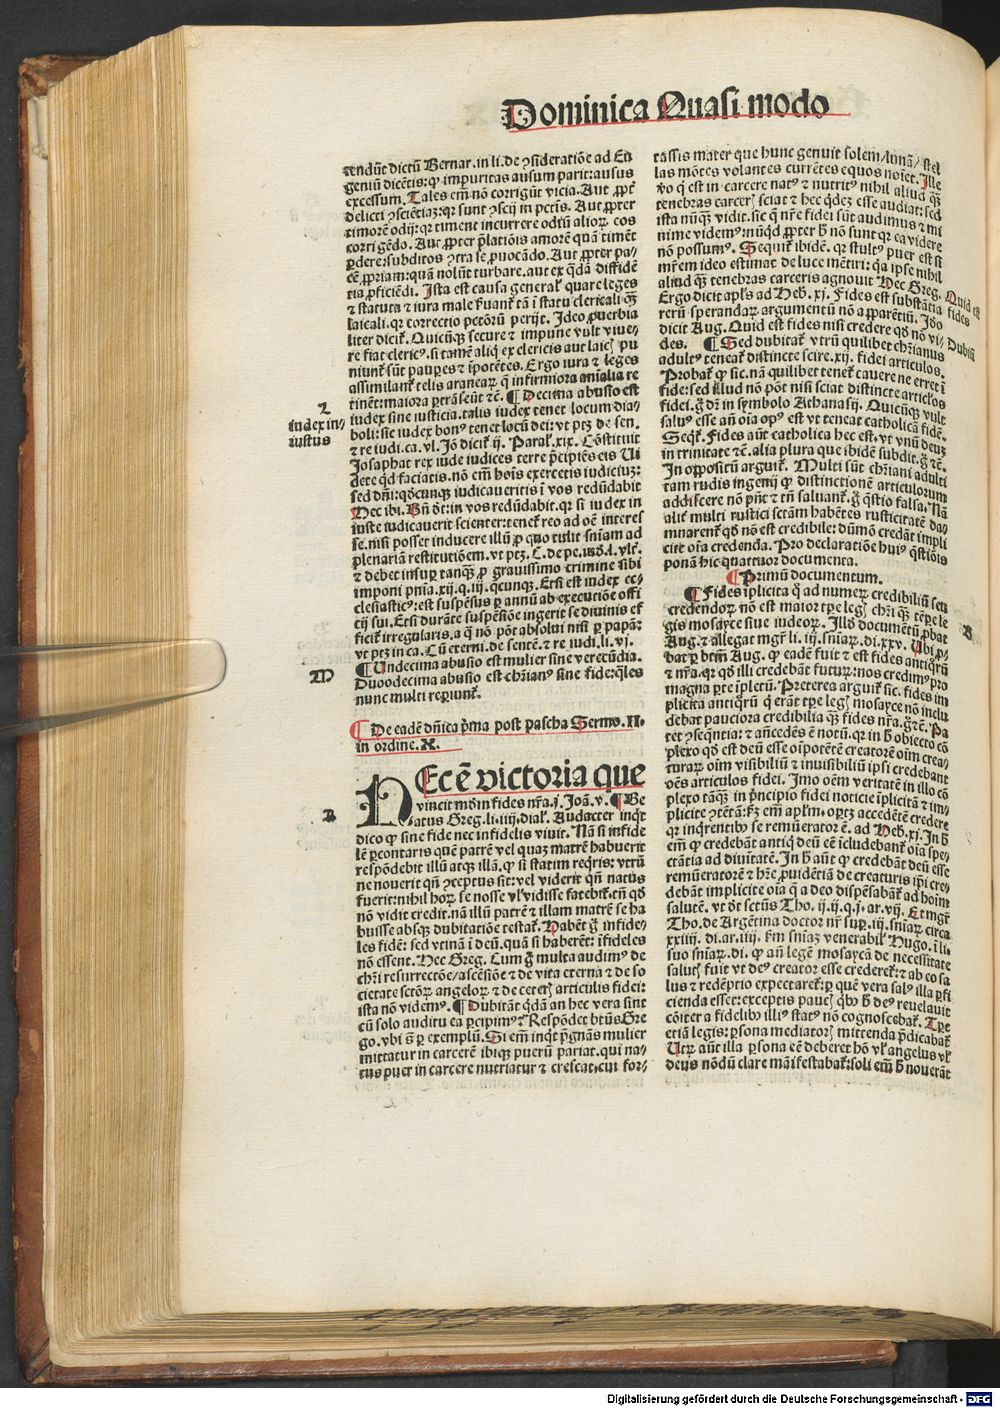 Dominica Quasi modo
tendūt dictū Bernar. in li. de ꝯsideratiōe ad Eu
geniū dicētis: ꝙ impuritas ausum parit: ausus
excessum. Tales em̄ nō corrigūt vicia. Aut ꝓpt̄
delicti ꝯsciētiaꝫ: qꝛ sunt ꝯscij in pctīs. Aut ꝓpter
timorē odij: qꝛ timent incurrere odiū alioꝝ eos
corrigēdo. Aut ꝓpter p̄lationis amorē quā timēt
ꝑdere: subditos ꝯtra se ꝓuocādo. Aut ꝓpter pa-
cē ꝓpriam: quā nolūt turbare. aut ex q̄dā diffidē
tia ꝓficiēdi. Ista est causa generalꝭ quare leges
⁊ statuta ⁊ iura male ẜuant᷑ tā ī statu clericali q̄ꝫ
laicali. qꝛ correctio pctōrū perijt. Ideo ꝓuerbia
liter dicit᷑. Quicūqꝫ secure ⁊ impune vult viue-
re fiat clericꝰ. si tamē aliq̄ ex clericis aut laicꝭ pu
niunt᷑ sūt pauꝑes ⁊ īpotētes. Ergo iura ⁊ leges
assimilant᷑ telis araneaꝝ q̄ infirmiora aīalia re
tinēt: maiora ꝑtrāseūt ⁊c̄. ¶ Decima abusio est
iudex sine iusticia. talis iudex tenet locum dia-
boli: sic iudex bonꝰ tenet locū dei: vt ptꝫ de sen.
⁊ re iudi. ca. vl. Iō dicit᷑ ij. Paral. xix. Cōstituit
Josaphat rex iude iudices terre p̄cipiēs eis Vi
dete qd faciatis. nō em̄ hoīs exercetis iudiciuꝫ:
sed dn̄i: qd̄cunqꝫ iudicaueritis ī vos redūdabit
Hec ibi. Bn̄ dt̄: in vos redūdabit. qꝛ si iudex in
iuste iudicauerit scienter: tenet᷑ reo ad oē interes
se. nisi posset inducere illū ꝓ quo tulit snīam ad
plenariā restitutiōem. vt ptꝫ. C. de pe. iud. l. vlt᷑.
⁊ debet insuꝑ tanqꝫ ꝓ grauissimo crimine sibi
imponi pnīa. xij. q. iij. qcunqꝫ. Etsi est iudex ec-
clesiasticꝰ: est suspēsus ꝑ annū ab executiōe offi
cij sui. Etsi durāte suspēsiōe ingerit se diuinis ef
ficit᷑ irregularis. a q̄ nō pōt absolui nisi ꝑ papā:
vt ptꝫ in ca. Cū eterni. de sentē. ⁊ re iudi. li. vj.
¶ Undecima abusio est mulier sine verecūdia.
Duodecima abusio est chr̄ianꝰ sine fide: q̄les
nunc multi reꝑiunt᷑.
¶ De eadē dn̄ica p̄ma post pascha Sermo. II.
in ordine. X.
HEc ē victoria que
vincit mūdm fides nr̄a. j. Joā. v. ¶ Be
atus Greg. li. iiij. dial᷑. Audacter inq̄t
dico ꝙ sine fide nec infidelis viuit. Nā si infide
lē ꝑcontaris quē patrē vel quaꝫ matrē habuerit
respōdebit illū atqꝫ illā. ꝙ si statim reqr̄is: vtrū
ne nouerit qn̄ ꝯceptus sit: vel viderit qn̄ natus
fuerit: nihil hoꝝ se nosse vl᷑ vidisse fatebit᷑. tn̄ qd̄
nō vidit credit. nā illū patrē ⁊ illam matrē se ha
buisse absqꝫ dubitatiōe testat᷑. Habēt ḡ infide-
les fidē: sed vtinā ī deū. quā si haberēt: īfideles
nō essent. Hec Greg. Cum ḡ multa audimꝰ de
chr̄i resurrectōe/ascēsiōe ⁊ de vita eterna ⁊ de so
cietate sctōꝝ angeloꝝ ⁊ de ceterꝭ articulis fidei:
ista nō videmꝰ. ¶ Dubitāt q̄dā an hec vera sint
cū solo auditu ea ꝑcipimꝰ? Respōdet btūs Gre
go. vbi s̄ ꝑ exemplū. Si em̄ inq̄t p̄gnās mulier
mittatur in carcerē ibiqꝫ puerū pariat. qui na-
tus puer in carcere nutriatur ⁊ crescat. cui for-
tassis mater que hunc genuit solem/lunā/stel
las mōtes volantes currētes equos noīet. Ille
ꝟo q̄ est in carcere natꝰ ⁊ nutritꝰ nihil aliud q̄ꝫ
tenebras carcerꝭ sciat ⁊ hec q̄dez esse audiat: sed
ista nūqꝫ vidit. sic q̄ nr̄e fidei sūt audimus ⁊ mi
nime videmꝰ: nūqd ꝓpter h̄ nō sunt qꝛ ea videre
nō possumꝰ. Sequit᷑ ibidē. qꝛ stultꝰ puer est si
mr̄em ideo estimat de luce mētiri: q̄a ipse nihil
aliud q̄ꝫ tenebras carceris agnouit Hec Greg.
Ergo dicit apl̄s ad Heb. xj. Fides est substātia
rerū sperandaꝝ argumentū nō apparētiū. Iō
dicit Aug. Quid est fides nisi credere qd̄ nō vi-
des. ¶ Sed dubitat᷑ vtrū quilibet chr̄ianus
adultꝰ teneat᷑ distincte scire. xij. fidei articulos.
Probat᷑ ꝙ sic. nā quilibet tenet᷑ cauere ne erret ī
fide: sed illud nō pōt nisi sciat distincte articl̄os
fidei. ḡ. dt̄ in symbolo Athanasij. Quicūqꝫ vult
saluꝰ esse an̄ oīa opꝰ est vt teneat catholicā fidē.
Seqt᷑. Fides aūt catholica hec est. vt vnū deuꝫ
in trinitate ⁊c̄. alia plura que ibidē subdit. ḡ. ⁊c̄.
In oppositū arguit᷑. Multi sūt chr̄iani adulti
tam rudis ingenij ꝙ distinctionē articulorum
addiscere nō pn̄t ⁊ tn̄ saluant᷑. ḡ q̄stio falsa. Nā
alit᷑ multi rustici sctām habētes rusticitatē da-
mnarent᷑ qd̄ nō est credibile: dūmō credāt impli
cite oīa credenda. Pro declaratiōe huiꝰ q̄stiōis
ponā hic quattuor documenta.
¶ Primū documentum.
¶ Fides īplicita q̄ ad numerꝝ credibiliū seu
credendoꝝ nō est maior tꝑe legꝭ chr̄i q̄ꝫ tꝑe le
gis mosayce siue iudeoꝝ. Illd̄ documētū ꝓbat
Aug. ⁊ allegat mgr̄ li. iij. snīaꝝ. di. xxv. Ubi ꝓ-
bat ꝑ btm̄ Aug. ꝙ eadē fuit ⁊ est fides antiq̄rū
⁊ nr̄a. qꝛ qd̄ illi credebāt futurꝝ: nos credimꝰ pro
magna ꝑte īpletū. Preterea arguit᷑ sic. fides im
plicita antiq̄rū q̄ erāt tꝑe legꝭ mosayce nō inclu
debat pauciora credibilia q̄ꝫ fides nr̄a. ḡ. ⁊c̄. Pa
tet ꝯseqn̄tia: ⁊ añcedēs ē notū. qꝛ in h̄ obiecto cō
plexo qd̄ est deū esse oīpotētē creatorē oīm crea-
turaꝝ oīm visibiliū ⁊ inuisibiliū ipsi credebant
oēs articulos fidei. Imo oēm veritatē in illo cō
plexo tāqꝫ in p̄ncipio fidei noticie īplicitā ⁊ im-
plicite ꝯtētā: ẜm em̄ apl̄m. oportꝫ accedētē credere
qꝛ inq̄rentibꝰ se remūerator ē. ad Heb. xj. In h̄
em̄ ꝙ credebāt antiq̄ deū eē īcludebant᷑ oīa spe-
ctātia ad diuitatē. In h̄ aūt ꝙ credebāt deū esse
remūeratorē ⁊ hr̄e ꝓuidētiā de creaturis ip̄i cre-
debāt implicite oīa q̄ a deo dispēsabāt᷑ ad hoīm
salutē. vt dt̄ sctūs Tho. ij. ij. q. j. ar. vij. Et mgr̄
Tho. de Argētina doctor nr̄ suꝑ. iij. snīaꝝ circa
xxiiij. di. ar. iiij. ẜm snīaꝫ venerabilꝭ Hugo. ī li.
suo snīaꝝ. di. ꝙ an̄ legē mosaycā de necessitate
salutꝭ fuit vt deꝰ creator esse crederet᷑: ⁊ ab eo sa
lus ⁊ redēptio expectaret᷑: ꝑ quē vera salꝰ illa ꝑfi
cienda esset: exceptis paucꝭ q̄bꝰ h̄ deꝰ reuelauit
cōiter a fidelibꝰ illiꝰ statꝰ nō cognoscebat᷑. Tꝑe
etiā legis: ꝑsona mediatorꝭ mittenda p̄dicabat᷑
Utꝝ aūt illa ꝑsona eē deberet hō vl᷑ angelus vl᷑
deus nōdū clare māifestabat᷑: soli em̄ h̄ nouerāt
L
iudex in-
iustus
M
A
Quid est
fides
Dubiū
B
Digitalisierung gefördert durch die Deutsche Forschungsgemeinschaft - DFG